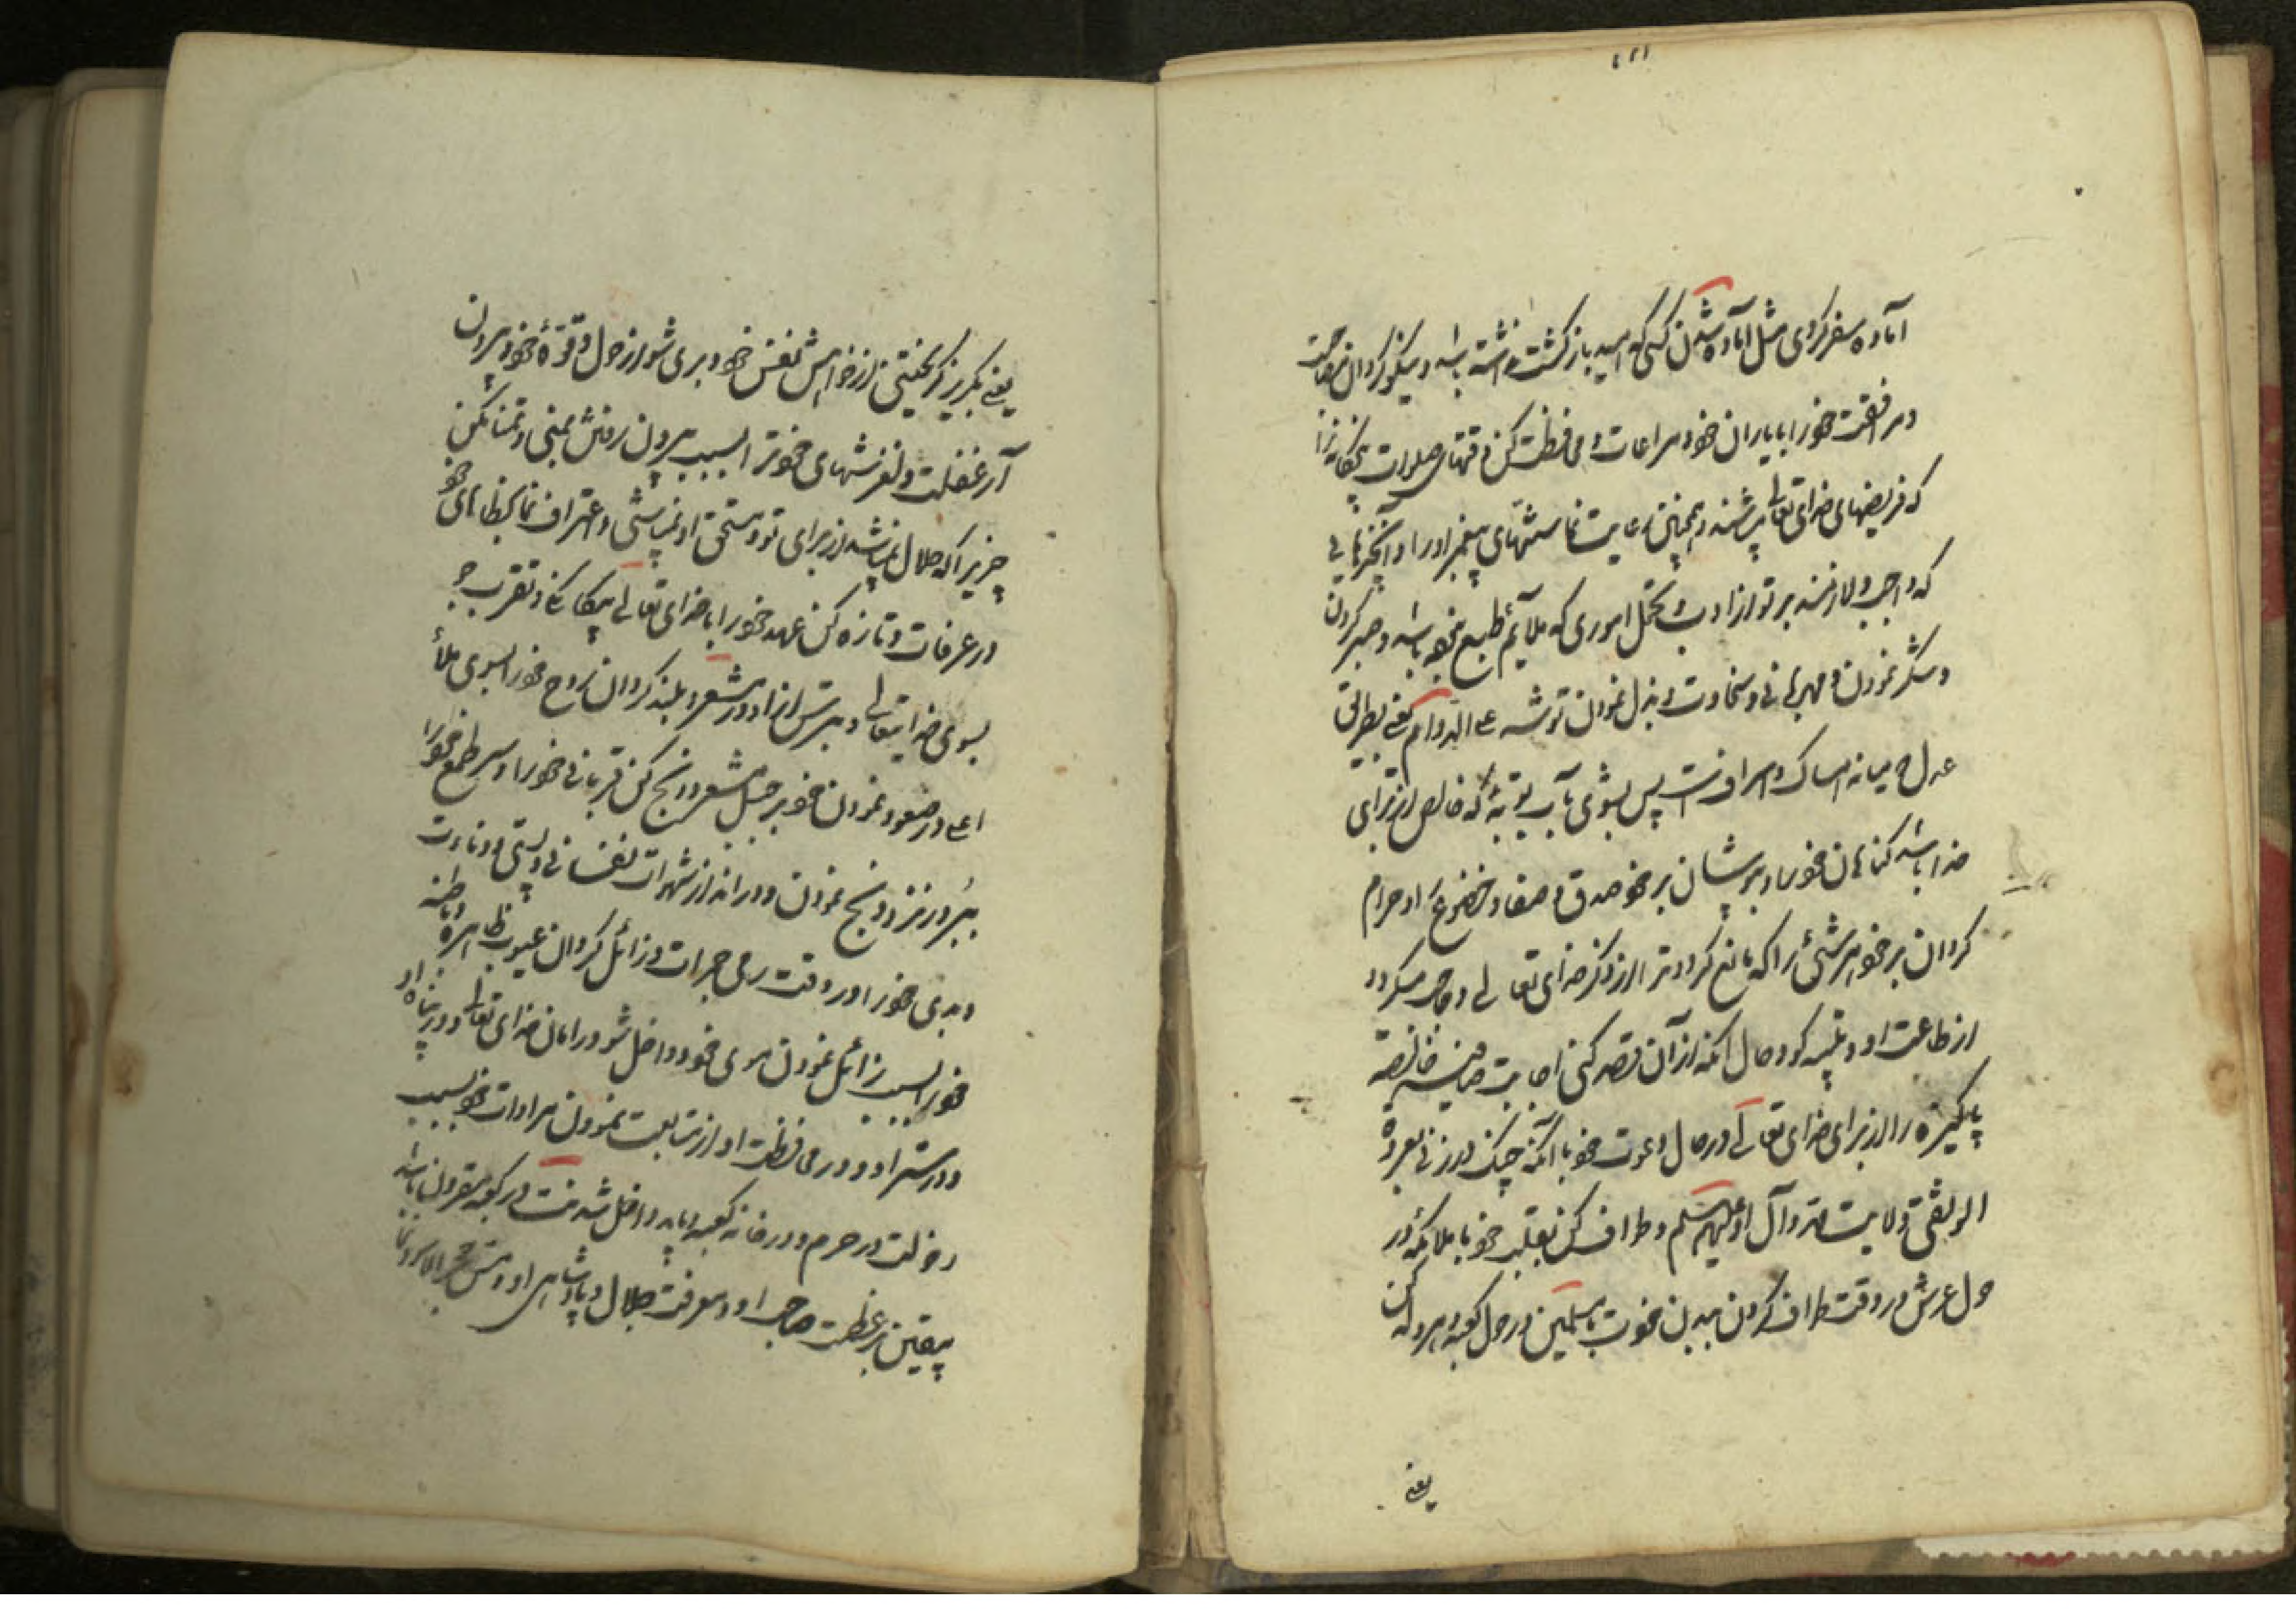 آماده سفر کردی مثل آماده شدن کسی که امید بازگشت نداشته باشد و نیکو گردان مصاحبت
و مرافقت خود را با یاران خود و مراعات و محافظت کن وقتهای صلوات پنجگانه را
که فریضهای خدای تعالی باشند و همچنین رعایت نما سنتهای پیغمبر او را و آنچیزهایی
که واجب و لازمند بر تو از ادب و تحمل اموری که ملایم طبع نبوده باشد و صبر کردن
و شکر نمودن و مهربانی و سخاوت و بذل نمودن توشه علی الدوام یعنی بطریق
عدل و میانه امساک و اسراف پس بشوی بآب توبهٔ که خالص از برای
خدا باشد گناهان خود را و بپوشان بر خود صدق و صفا و خضوع او حرام
گردان بر خود هر شئ را که مانع گردد ترا از ذکر خدای تعالی و حاجب میگردد
از طاعت او و تلبیه گو و حال آنکه از آن قصد کنی اجابت صافیه خالصه
پاکیزه را از برای خدای تعالی در حال دعوت خود با آنکه چنگ در زنی بعروة
الوثقی ولایت و آل او علیهم سلم و طواف کن بقلب خود با ملائکه در
حول عرش در وقت طواف کردن ببدن خودت با مسلمین در حول کعبه و هروله کن
یعنی
یعنی بگریز گریختنی از خواهش نفس خود و بری شو از حول و قوهٔ خود بیرون
آ از غفلت و لغزشهای خودت بسبب بیرون رفتنش بمنی و تمنا مکن
چیزیرا که حلال نباشد از برای تو و مستحق او نباشی و اعتراف نما بخطاهای خود
در عرفات و تازه کن عهد خود را با خدای تعالی بیگانگی و تقرب جو
بسوی خدایتعالی و بترس از او در مشعر و بلند گردان روح خود را بسوی ملأ
اعلی در صعود نمودن خود بر جبل مشعر و ذبح کن قربانی خود را و سر طمع خود را
ببر در نزد ذبح نمودن و دور انداز شهوات نفسانی و پستی و دنائت
و بدی خود را در وقت رمی جمرات و زائل گردان عیوب ظاهره و باطنه
خود را بسبب زائل نمودن موی خود و داخل شو در امان خدای تعالی و در پناه او
و در ستر او و در محافظت او از متابعت نمودن مرادات خود بسبب
دخولت در حرم و در خانه کعبه و باید داخل شدنت در کعبه مقرون باشد
بیقین بر عظمت صاحب او و معرفت جلال و پادشاهی او و مس حجر الاسود نما